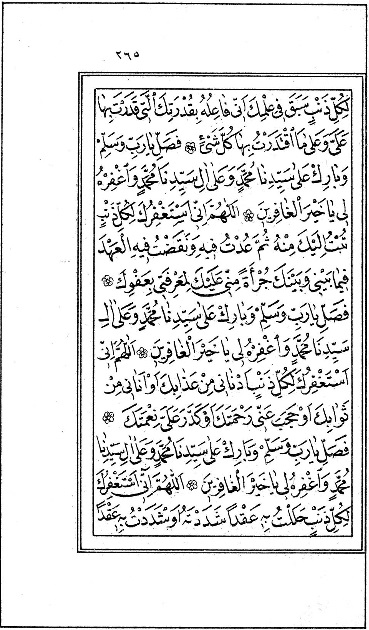 ٢٦٥
لِكُلِّ ذَنْبٍ سَبَقَ فِي عِلْمِكَ اَنِّي فَاعِلُهُ بِقُدْرَتِكَ الَّتِي قَدَرْتَ بِهَا
عَلَيَّ وَعَلَى مَا اقْتَدَرْتَ بِهَا كُلَّ شَيْءٍ ۞ فَصَلِّ يَا رَبِّ وَسَلِّمْ
وَبَارِكْ عَلَى سَيِّدِنَا مُحَمَّدٍ وَعَلَى اٰلِ سَيِّدِنَا مُحَمَّدٍ وَاغْفِرْهُ
لِي يَا خَيْرَ الْغَافِرِينَ ۞ اَللّٰهُمَّ اِنِّي اَسْتَغْفِرُكَ لِكُلِّ ذَنْبٍ
تُبْتُ اِلَيْكَ مِنْهُ ثُمَّ عُدْتُ فِيهِ وَنَقَضْتُ فِيهِ الْعَهْدَ
فِيمَا بَيْنِي وَبَيْنَكَ جُرْأَةً مِنِّي عَلَيْكَ لِمَعْرِفَتِي بِعَفْوِكَ ۞
فَصَلِّ يَا رَبِّ وَسَلِّمْ وَبَارِكْ عَلَى سَيِّدِنَا مُحَمَّدٍ وَعَلَى اٰلِ
سَيِّدِنَا مُحَمَّدٍ وَاغْفِرْهُ لِي يَا خَيْرَ الْغَافِرِينَ ۞ اَللّٰهُمَّ اِنِّي
اَسْتَغْفِرُكَ لِكُلِّ ذَنْبٍ اَدْنَانِي مِنْ عَذَابِكَ اَوْ اَنْاٰنِي مِنْ
ثَوَابِكَ اَوْ حَجَبَ عَنِّي رَحْمَتَكَ اَوْ كَدَّرَ عَلَيَّ نِعْمَتَكَ ۞
فَصَلِّ يَا رَبِّ وَسَلِّمْ وَبَارِكْ عَلَى سَيِّدِنَا مُحَمَّدٍ وَعَلَى اٰلِ سَيِّدِنَا
مُحَمَّدٍ وَاغْفِرْهُ لِي يَا خَيْرَ الْغَافِرِينَ ۞ اَللّٰهُمَّ اِنِّي اَسْتَغْفِرُكَ
لِكُلِّ ذَنْبٍ حَلَلْتُ بِهِ عَقْدًا شَدَدْتَهُ اَوْ شَدَدْتُ بِهِ عَقْدًا